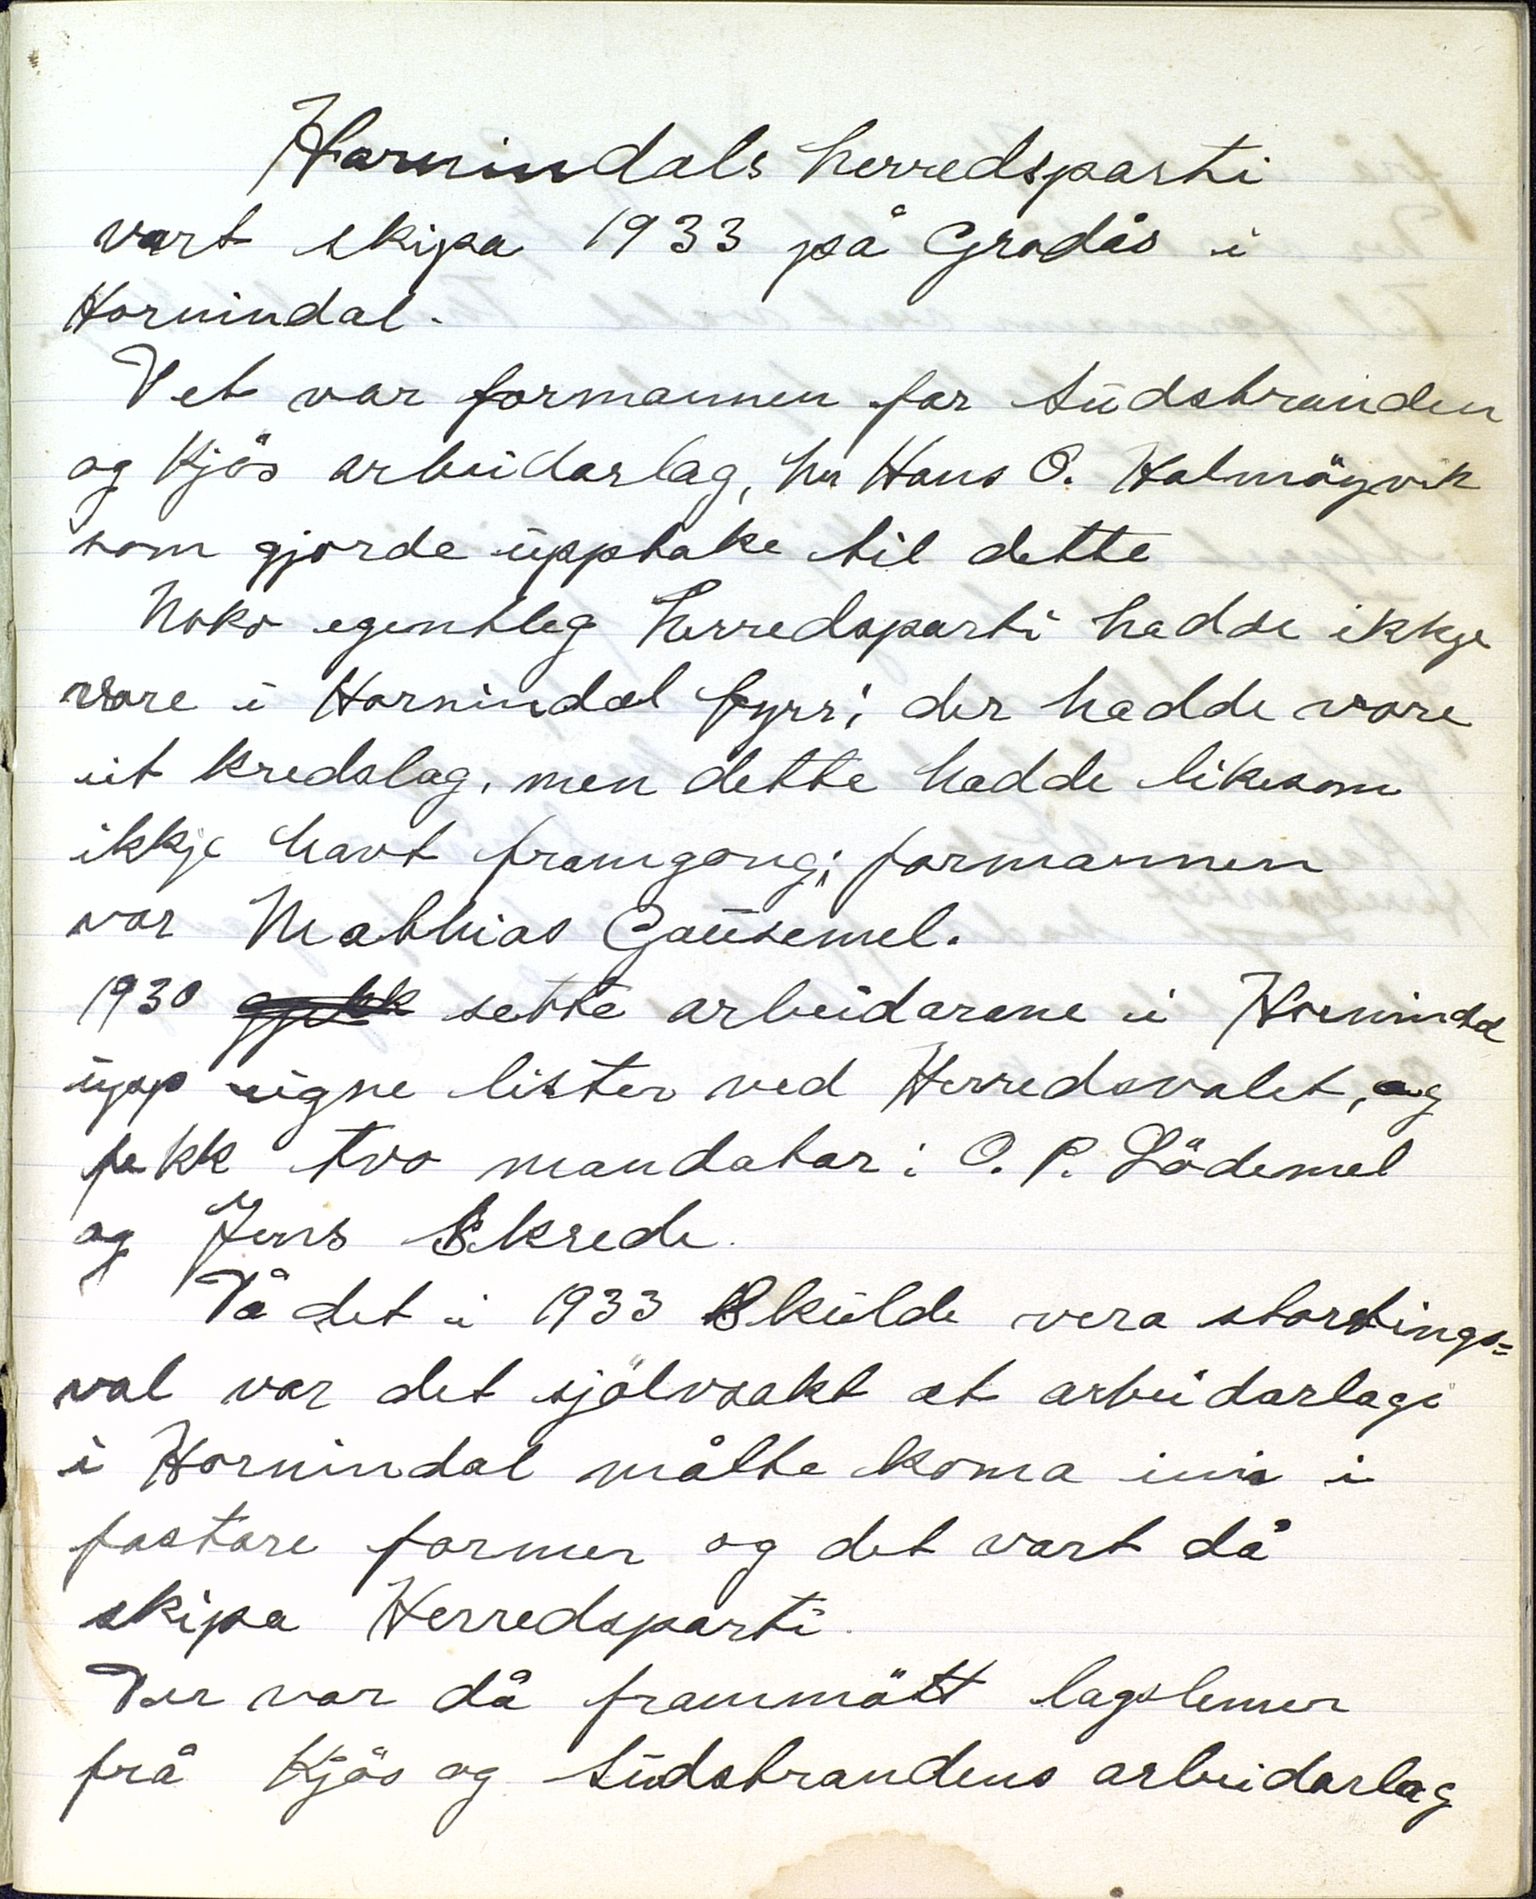 Hornindals herredsparti
vart skipa 1933 på Grodås i
Hornindal.
Det var formannen for Südstranden
og Kjös arbeidarlag, hr Hans O. Holmöyvik
som gjorde üpptake til dette
Noko egentleg herredsparti hadde ikkje
vore i Hornindal fyrr; der hadde vore
eit kredslag, men dette hadde likesom
ikkje havt framgong; formannen
var Mathias Gaüsemel.
1930 gjekk sette arbeidarane i Hornindal
üpp eigne lister ved Herredsvalet, og
fekk tvo mandatar: O. P. Lödemel
og Jens Skrede.
Då det i 1933 Skülde vera stortings=
val var det sjölvsakt at arbeidarlagi
i Hornindal måtte koma inn i
fastare former og det vart då
skipa Herredsparti.
Der var då frammött lagslemer
frå Kjös og Südstrandens arbeidarlag